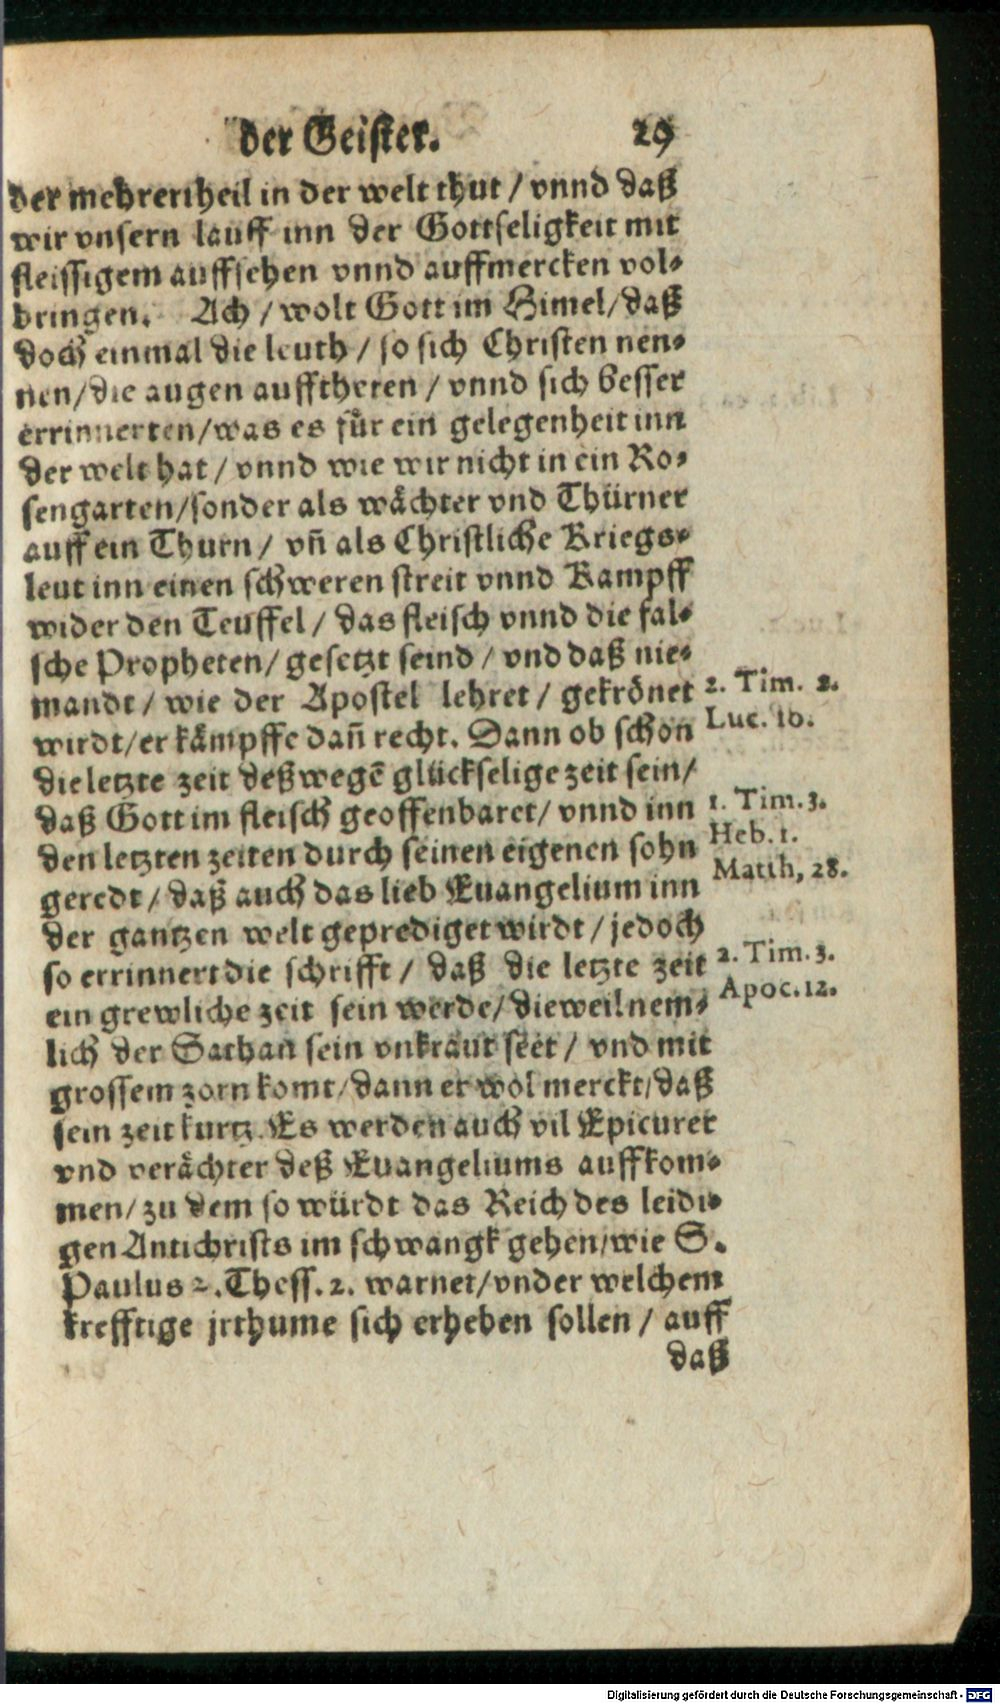 der Geister. 29
der mehrertheil in der welt thut / vnnd daß
wir vnsern lauff inn der Gottseligkeit mit
fleissigem auffsehen vnnd auffmercken vol-
bringen. Ach / wolt Gott im Himel / daß
doch einmal die leuth / so sich Christen nen-
nen / die augen aufftheten / vnnd sich besser
errinnerten / was es für ein gelegenheit inn
der welt hat / vnnd wie wir nicht in ein Ro-
sengarten / sonder als wächter vnd Thürner
auff ein Thurn / vn̄ als Christliche Kriegs-
leut inn einen schweren streit vnnd Kampff
wider den Teuffel / das fleisch vnnd die fal-
sche Propheten / gesetzt seind / vnd daß nie-
mandt / wie der Apostel lehret / gekrönet
2. Tim. 2.
wirdt / er kämpffe dan̄ recht. Dann ob schon
Luc. 10.
die letzte zeit deßwegē glückselige zeit sein /
daß Gott im fleisch geoffenbaret / vnnd inn
1. Tim. 3.
den letzten zeiten durch seinen eigenen sohn
Heb. 1.
geredt / daß auch das lieb Euangelium inn
Matth, 28.
der gantzen welt geprediget wirdt / jedoch
so errinnert die schrifft / daß die letzte zeit
2. Tim. 3.
ein grewliche zeit sein werde / dieweil nem-
Apoc. 12.
lich der Sathan sein vnkraut seet / vnd mit
grossem zorn komt / dann er wol merckt / daß
sein zeit kurtz. Es werden auch vil Epicurer
vnd verächter deß Euangeliums auffkom-
men / zu dem so würdt das Reich des leidi-
gen Antichrists im schwangk gehen / wie S.
Paulus 2. Thess. 2. warnet / vnder welchem
krefftige jrthume sich erheben sollen / auff
daß
Digitalisierung gefördert durch die Deutsche Forschungsgemeinschaft - DFG